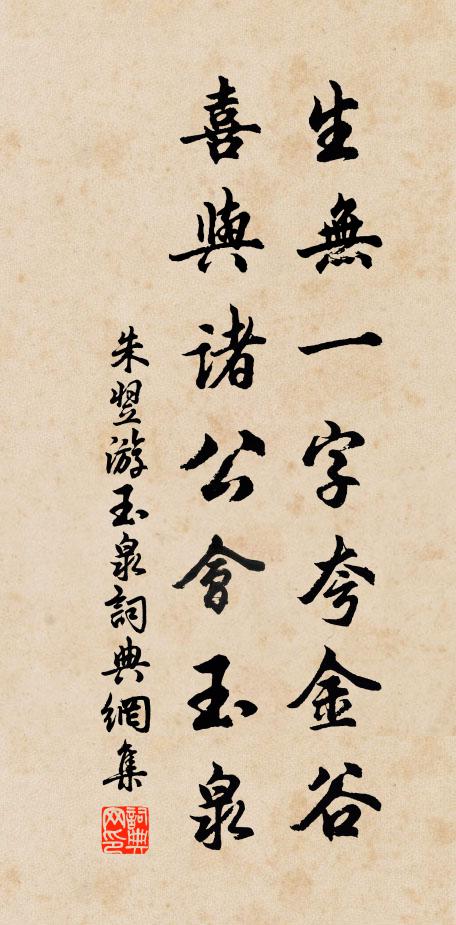 生無一字夸金谷
喜與諸公會玉泉
朱翌游玉泉詞典網集
詞典
网印